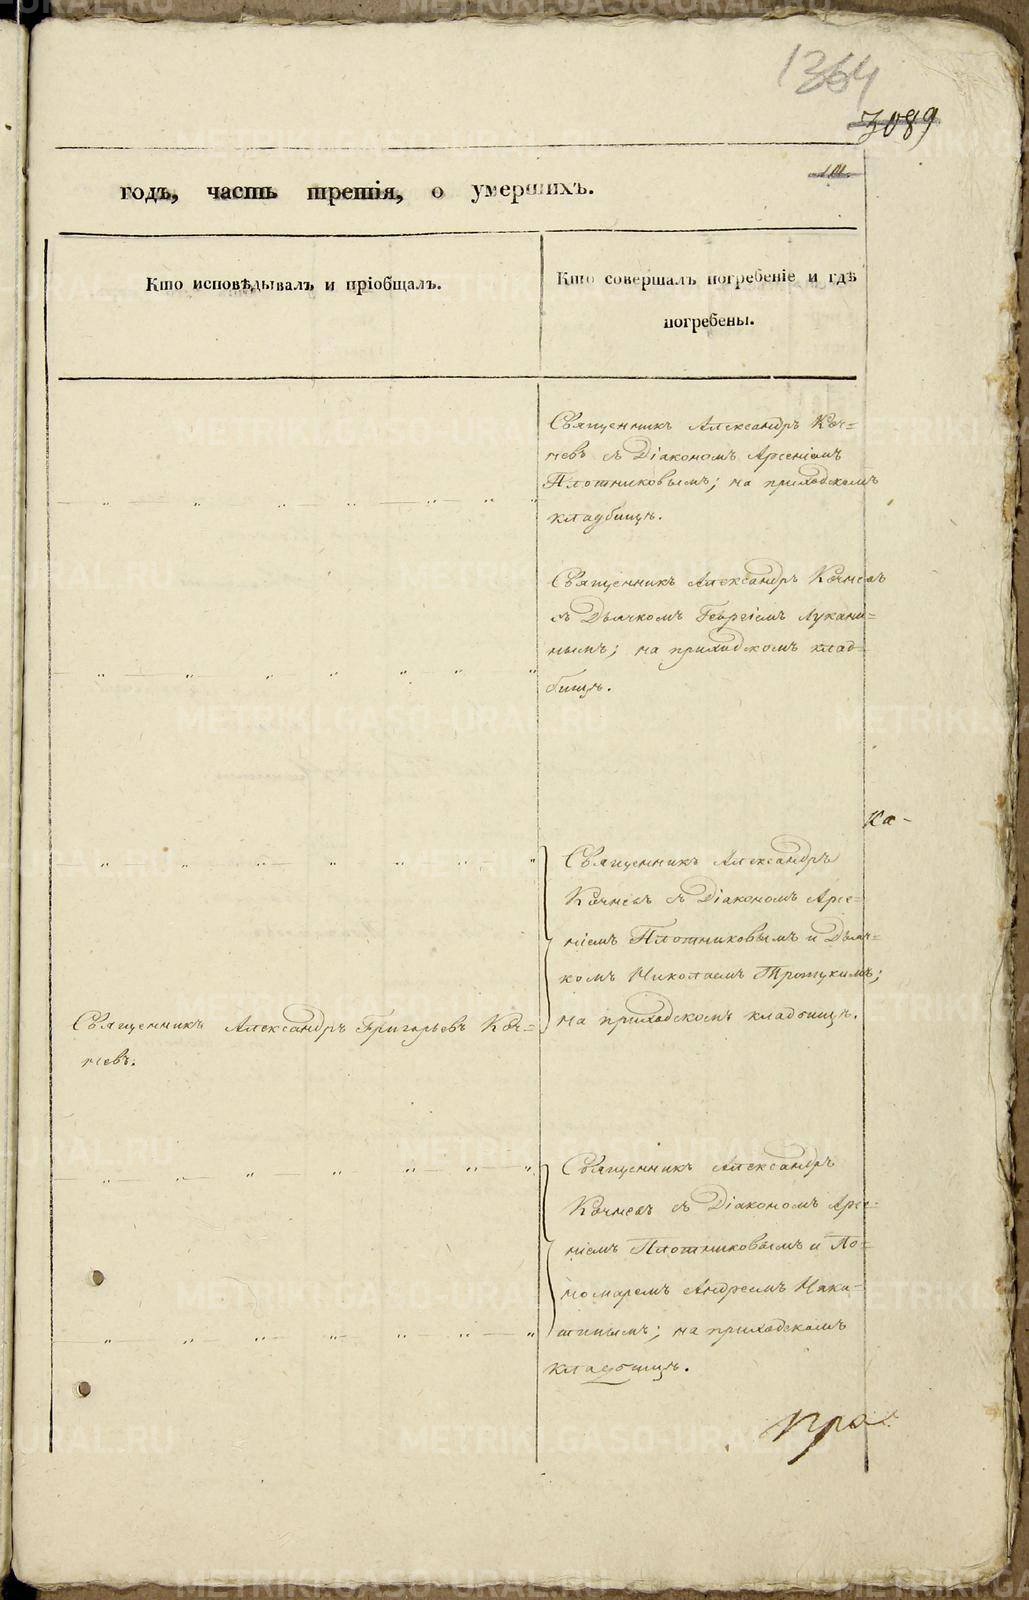 1364
3089
годъ, часть третія, о умершихъ.
Кто исповѣдывалъ и пріобщалъ.
Кто совершалъ погребеніе и гдѣ
погребены.
Священникъ Александръ Коч=
невъ съ Діакономъ Арсеніемъ
Плотниковымъ; на приходскомъ
кладбищѣ.
Священникъ Александръ Кочневъ
съ Дьячкомъ Георгіемъ Лукани=
нымъ; на приходскомъ клад=
бищѣ.
Ка-
Священникъ Александръ
Кочневъ съ Діакономъ Арсе=
ніемъ Плотниковымъ и Дьяч=
комъ Николаемъ
на приходскомъ кладбищѣ.
Священникъ Александръ Григорьевъ Коч=
невъ.
Священникъ Александръ
Кочневъ съ Діакономъ Арсе=
ніемъ Плотниковымъ и По=
номаремъ Андреемъ Ники=
тинымъ; на приходскомъ
кладбищѣ.
METRIKI.GASO-URAL.RU